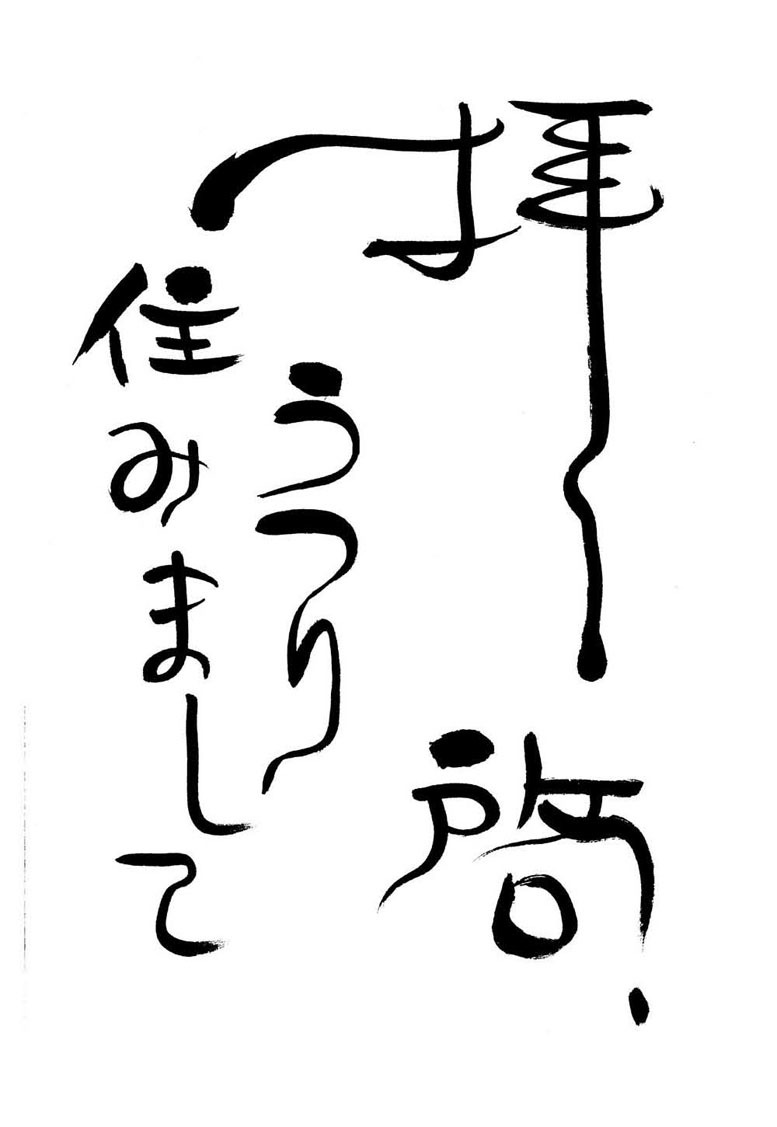 拝啓、
うつり
住みまして